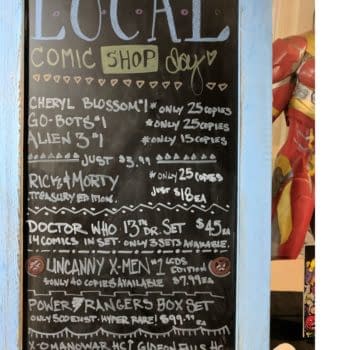 LOCAL
COMIC SHOP day
CHERYL BLOSSOM #1 *ONLY 25 COPIES
GO-BOTS #1 *ONLY 25 COPIES
ALIEN 3 #1 *ONLY 15 COPIES
JUST $3.99
RICK & MORTY *ONLY 25 COPIES
TREASURY EDITION. JUST $18 EA
DOCTOR WHO 13TH DR. SET $45 EA
14 COMICS IN SET. ONLY 3 SETS AVAILABLE.
UNCANNY X-MEN #1 LCDS EDITION
*ONLY 40 COPIES AVAILABLE $7.99 EA
POWER RANGERS BOX SET
ONLY 500 EXIST. HYPER RARE! $99.99 EA
X-O MANOWAR HC GIDEON FALLS HC